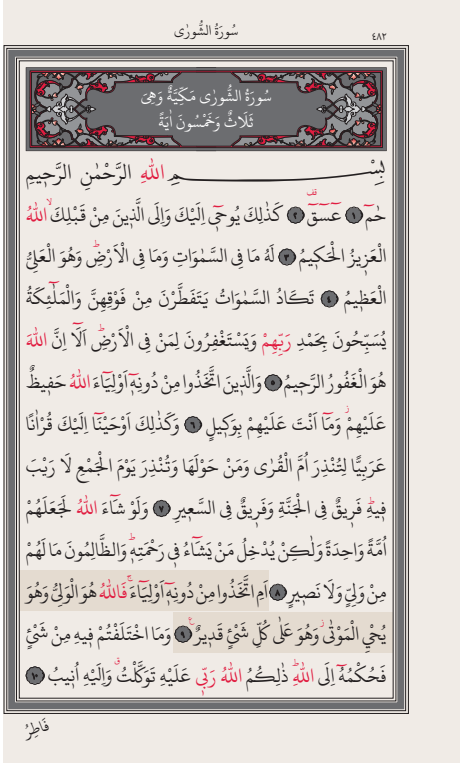 سُورَةُ الشُّورٰى
٤٨٢
سُورَةُ الشُّورٰى مَكِّيَّةٌ وَهِيَ
ثَلَاثٌ وَخَمْسُونَ اٰيَةً
بِسْمِ اللّٰهِ الرَّحْمٰنِ الرَّحِيمِ
حٰمٓ ١ عٓسٓقٓ ٢ كَذٰلِكَ يُوحٓى اِلَيْكَ وَاِلَى الَّذِينَ مِنْ قَبْلِكَۙ اللّٰهُ
الْعَزِيزُ الْحَكِيمُ ٣ لَهُ مَا فِى السَّمٰوَاتِ وَمَا فِى الْاَرْضِۜ وَهُوَ الْعَلِىُّ
الْعَظِيمُ ٤ تَكَادُ السَّمٰوَاتُ يَتَفَطَّرْنَ مِنْ فَوْقِهِنَّ وَالْمَلٰٓئِكَةُ
يُسَبِّحُونَ بِحَمْدِ رَبِّهِمْ وَيَسْتَغْفِرُونَ لِمَنْ فِى الْاَرْضِۜ اَلَٓا اِنَّ اللّٰهَ
هُوَ الْغَفُورُ الرَّحِيمُ ٥ وَالَّذِينَ اتَّخَذُوا مِنْ دُونِهٓ اَوْلِيَٓاءَ اللّٰهُ حَفِيظٌ
عَلَيْهِمْۘ وَمَٓا اَنْتَ عَلَيْهِمْ بِوَكِيلٍ ٦ وَكَذٰلِكَ اَوْحَيْنَٓا اِلَيْكَ قُرْاٰنًا
عَرَبِيًّا لِتُنْذِرَ اُمَّ الْقُرٰى وَمَنْ حَوْلَهَا وَتُنْذِرَ يَوْمَ الْجَمْعِ لَا رَيْبَ
فِيهِۜ فَرِيقٌ فِى الْجَنَّةِ وَفَرِيقٌ فِى السَّعِيرِ ٧ وَلَوْ شَٓاءَ اللّٰهُ لَجَعَلَهُمْ
اُمَّةً وَاحِدَةً وَلٰكِنْ يُدْخِلُ مَنْ يَشَٓاءُ فِى رَحْمَتِهِۜ وَالظَّالِمُونَ مَا لَهُمْ
مِنْ وَلِىٍّ وَلَا نَصِيرٍ ٨ اَمِ اتَّخَذُوا مِنْ دُونِهٓ اَوْلِيَٓاءَۚ فَاللّٰهُ هُوَ الْوَلِىُّ وَهُوَ
يُحْيِ الْمَوْتٰىۘ وَهُوَ عَلٰى كُلِّ شَىْءٍ قَدِيرٌ۟ ٩ وَمَا اخْتَلَفْتُمْ فِيهِ مِنْ شَىْءٍ
فَحُكْمُهُٓ اِلَى اللّٰهِۜ ذٰلِكُمُ اللّٰهُ رَبِّى عَلَيْهِ تَوَكَّلْتُۗ وَاِلَيْهِ اُنِيبُ ١٠
فَاطِرُ